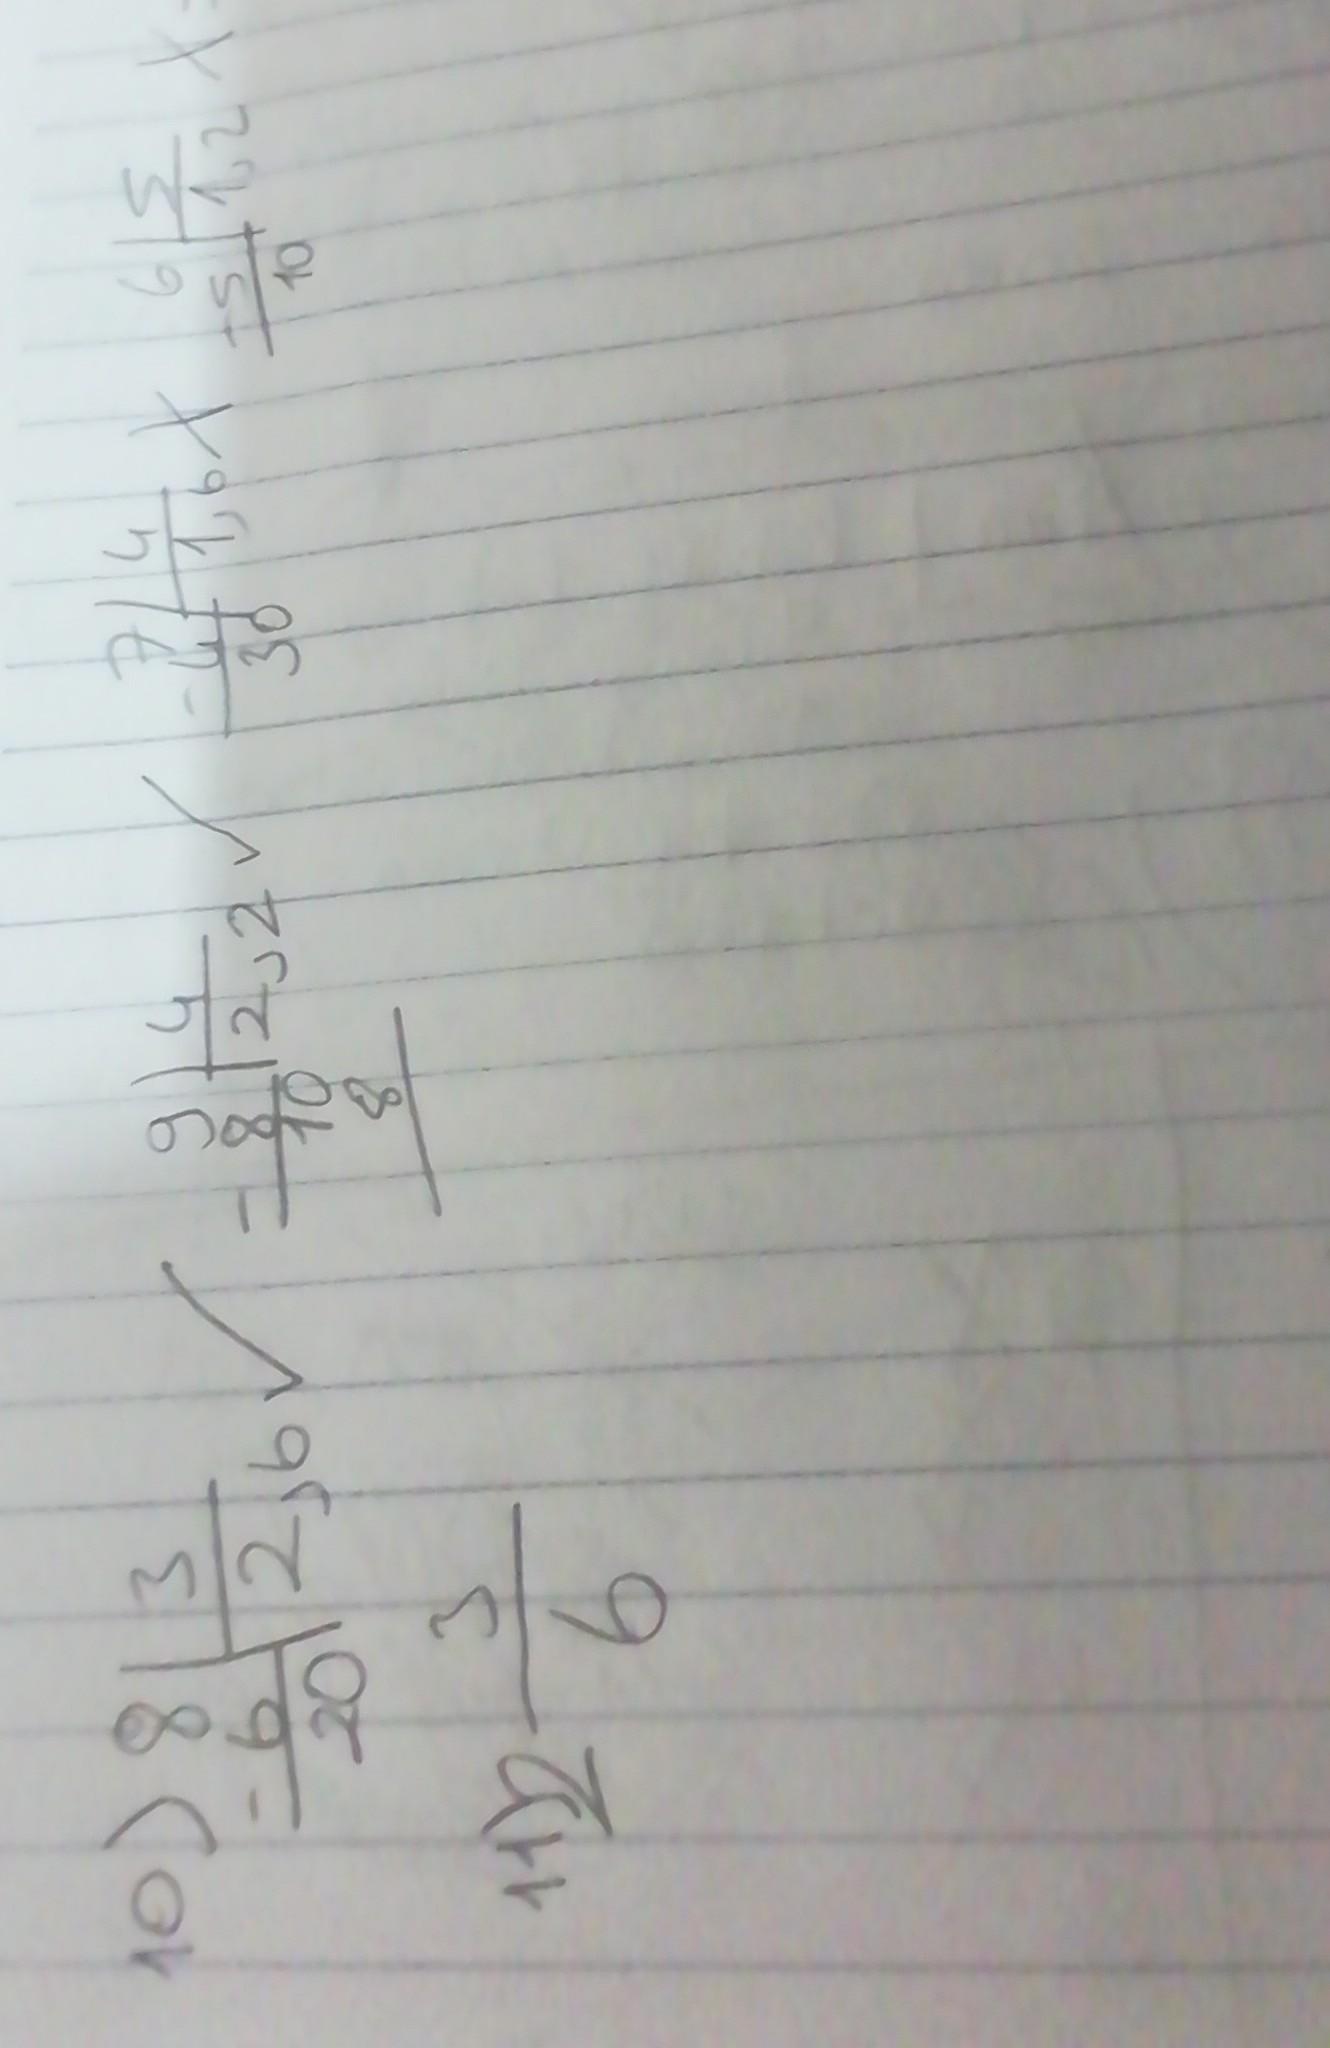 10) 8 | 3 ✓ 9 | 4 ✓ 7 | 4 X 6 | 5 X =
- 6 | 2,6 - 8 | 2,2 - 4 | 1,6 - 5 | 1,2
20 10 30 10
8
11) 2 3/6